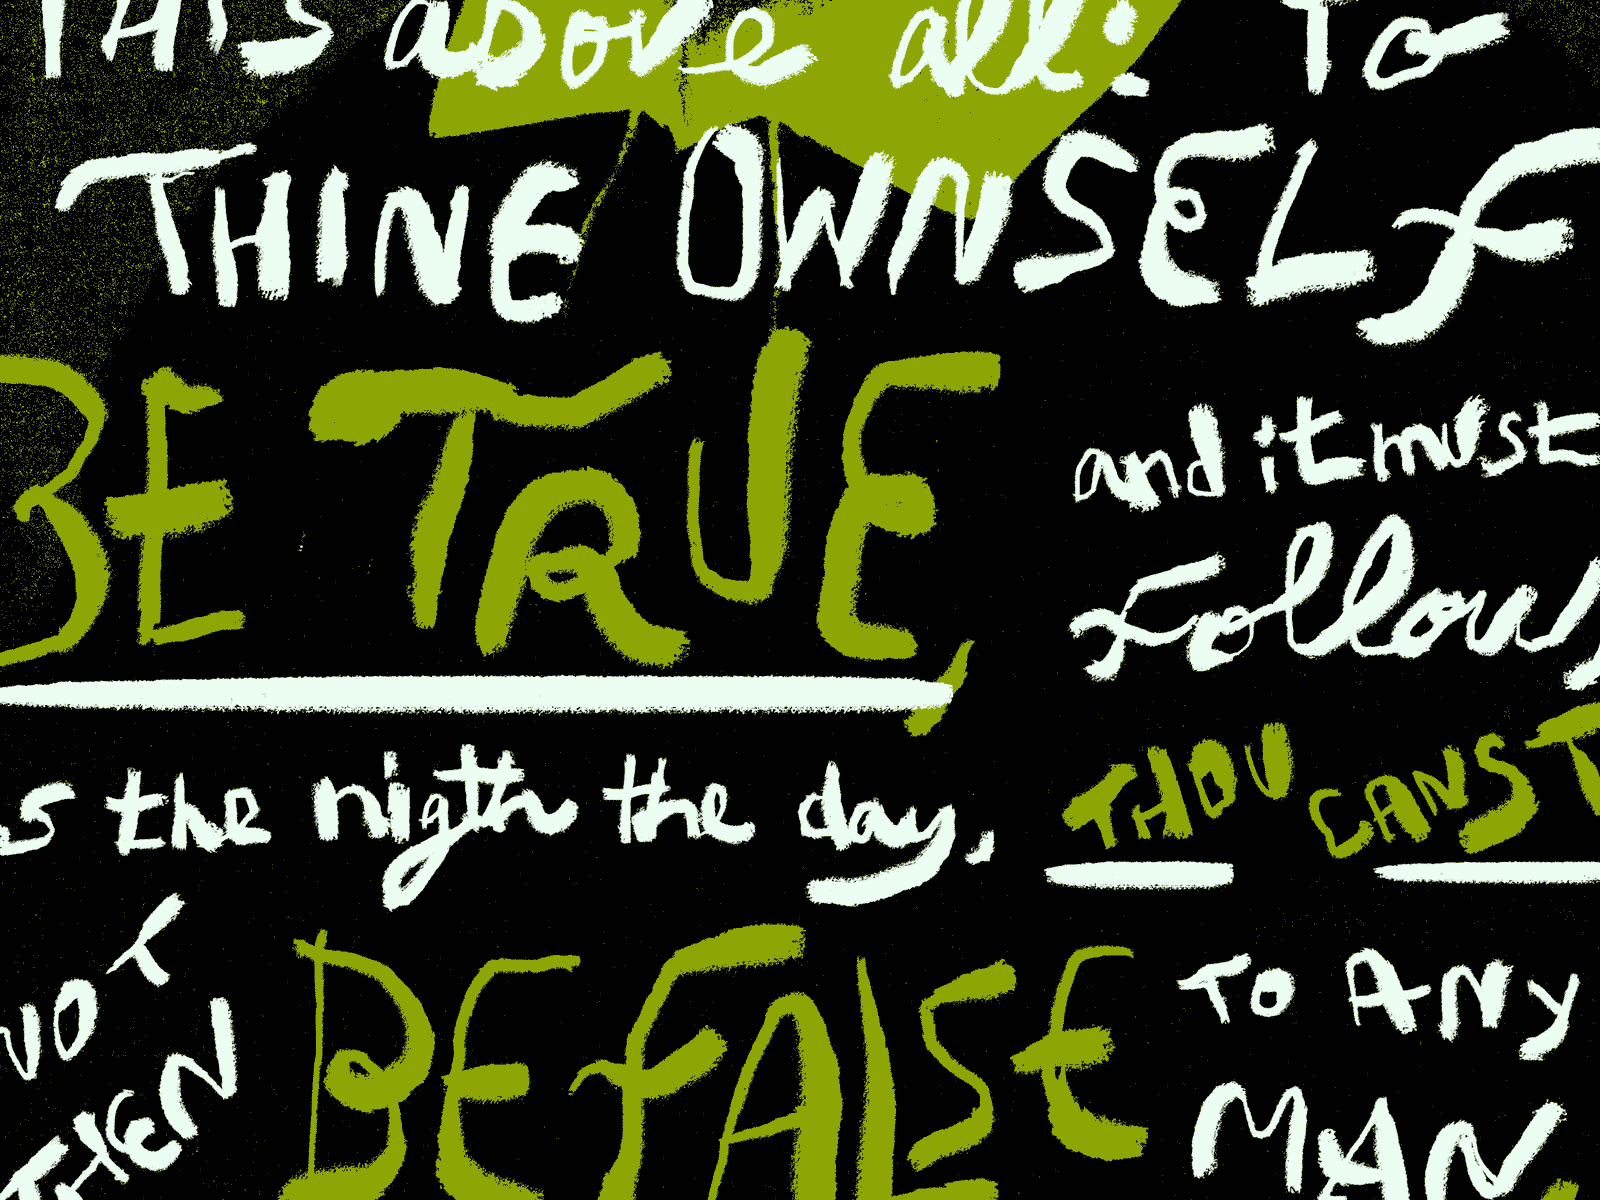 THIS above all: To
THINE OWNSELF
BE TRUE,
and it must
Follow,
s the nigth the day,
THOU CANST
NOT
THEN
BE FALSE
TO ANY
MAN.